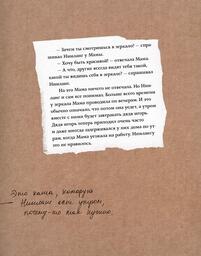 — Зачем ты смотришься в зеркало? — спра-
шивал Ниилане у Мамы.
— Хочу быть красивой! — отвечала Мама
— А что, другие всегда видят тебя такой,
какой ты видишь себя в зеркале? — спрашивал
Но Мама ничего не отвечала. Но
и сам все понимал. Больше всего времени
у зеркала Мама проводила по вечерам. И это
обычно означало, что потом она уедет, а утром
вместе с ними будет завтракать дядя игорь.
Дядя игорь теперь приходил очень часто
и даже иногда задерживался у них дома по ут-
рам, когда Мама уезжала на работу.
это не нравилось.
Это каша, которую
потому что так нужно.